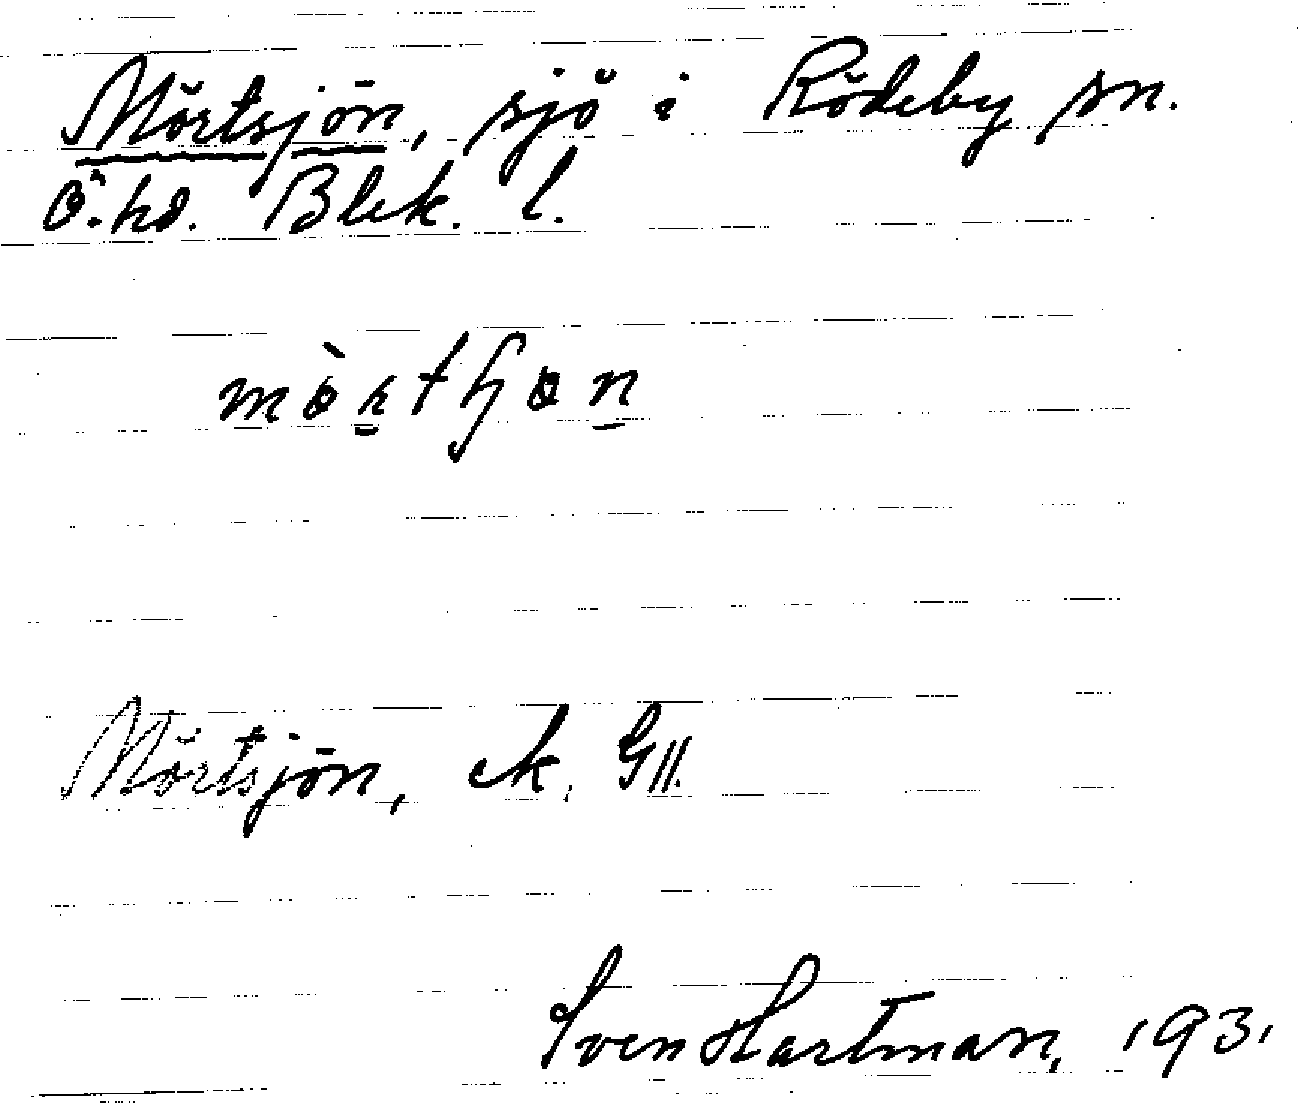 Mörtsjön, sjö i Rödeby sn.
Ö. hd. Blek. l.
Mörtsjön, ek. GII.
Sven Hartman, 1931